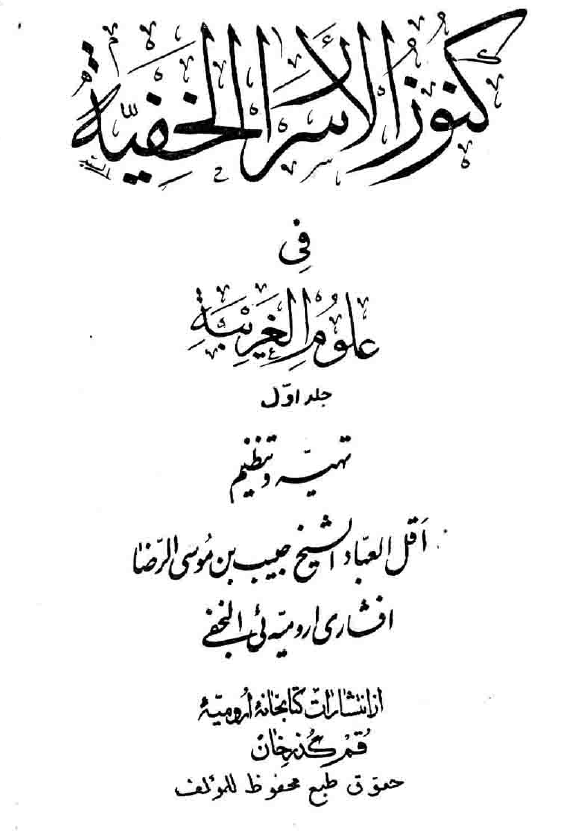 كُنُوزُ الْأَسْرَارِ الْخَفِيَّةِ
فِي
عُلُومِ الْغَرِيْبَةِ
جلد اوّل
تهيّه و تنظيم
اَقل العبّاد الشيخ حبيب بن مُوسى الرّضا
افشارى اروميّه ئى النجفى
از انتشارات كتابخانۀ اُروميّۀ
قُم گذرخان
حقوق طبع محفوظ للمؤلف